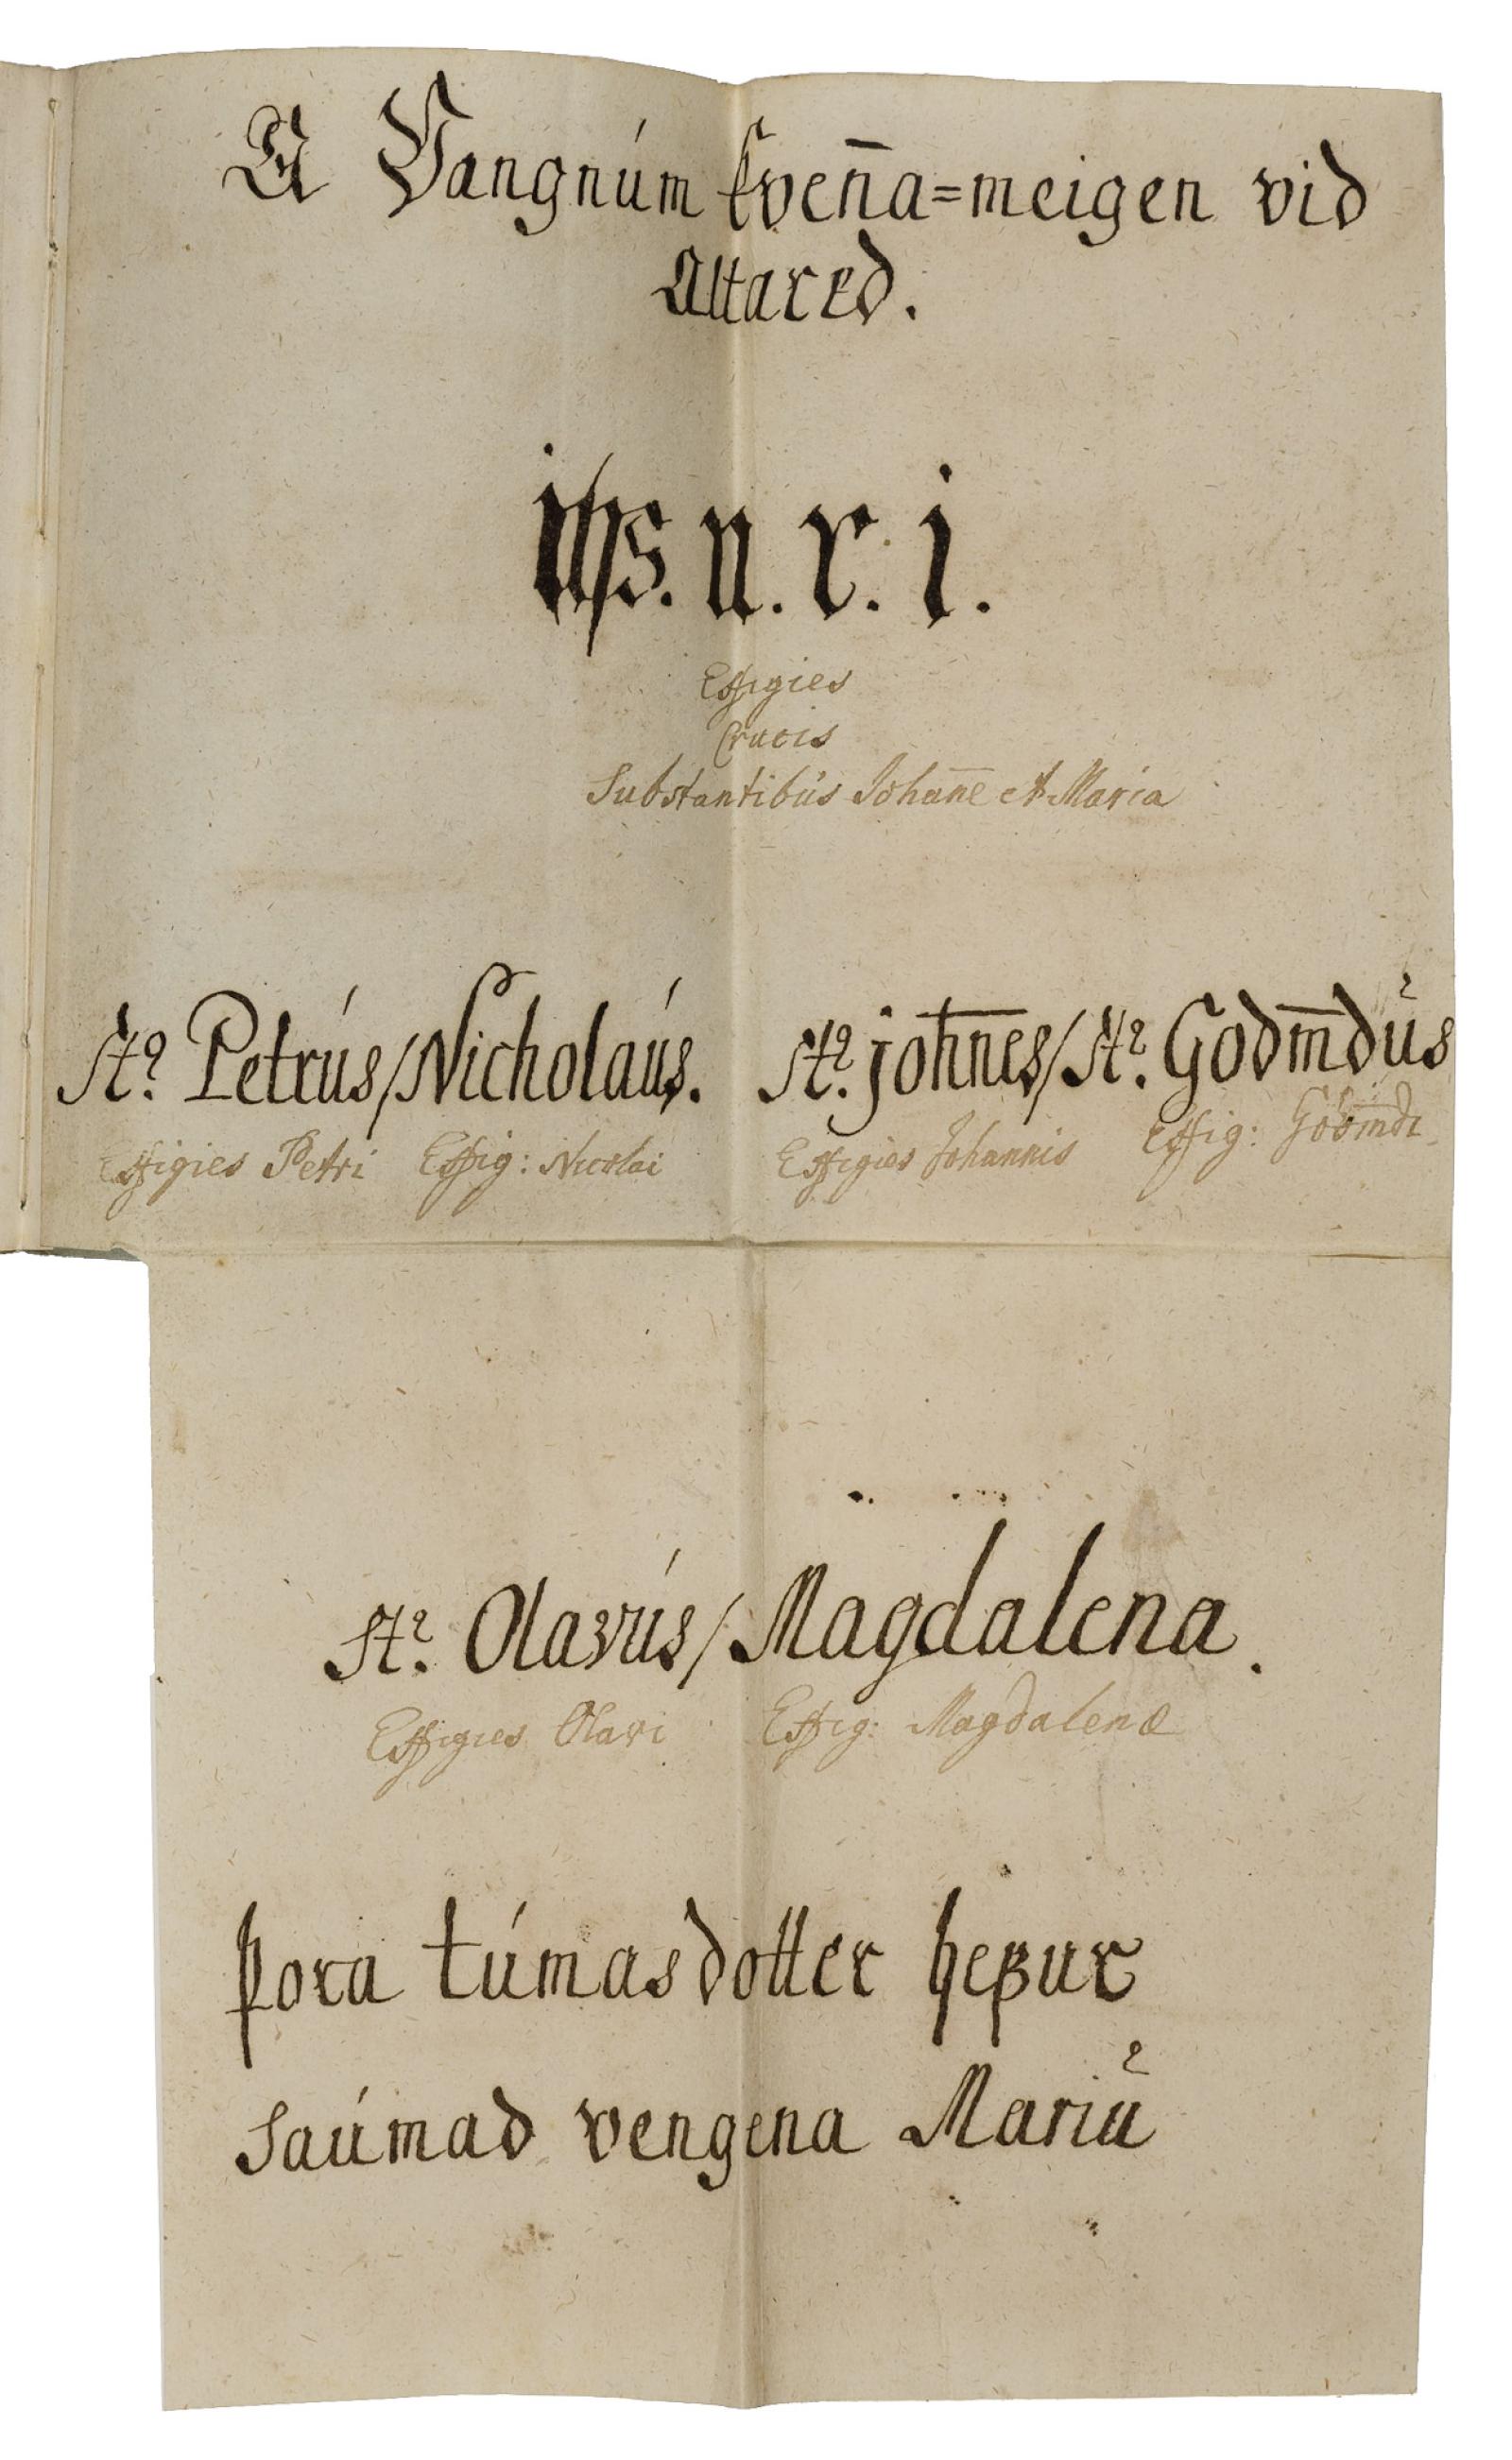 A Vangnúm kven̄a=meigen vid
Altared.
ihs. n. r. i.
Effigies
Crucis
Substantibus Johan̄e et Maria
St². Petrús/Nicholaús. St². joh̄n̄es/St². Godm̄dus
Effigies Petri Effig: Nicolai Effigies Johannis Effig: Godm̄di
St². Olavús/Magdalena.
Effigies Olavi Effig: Magdalenæ
þora túmasdotter heꝼur
saúmad vengena Mariu